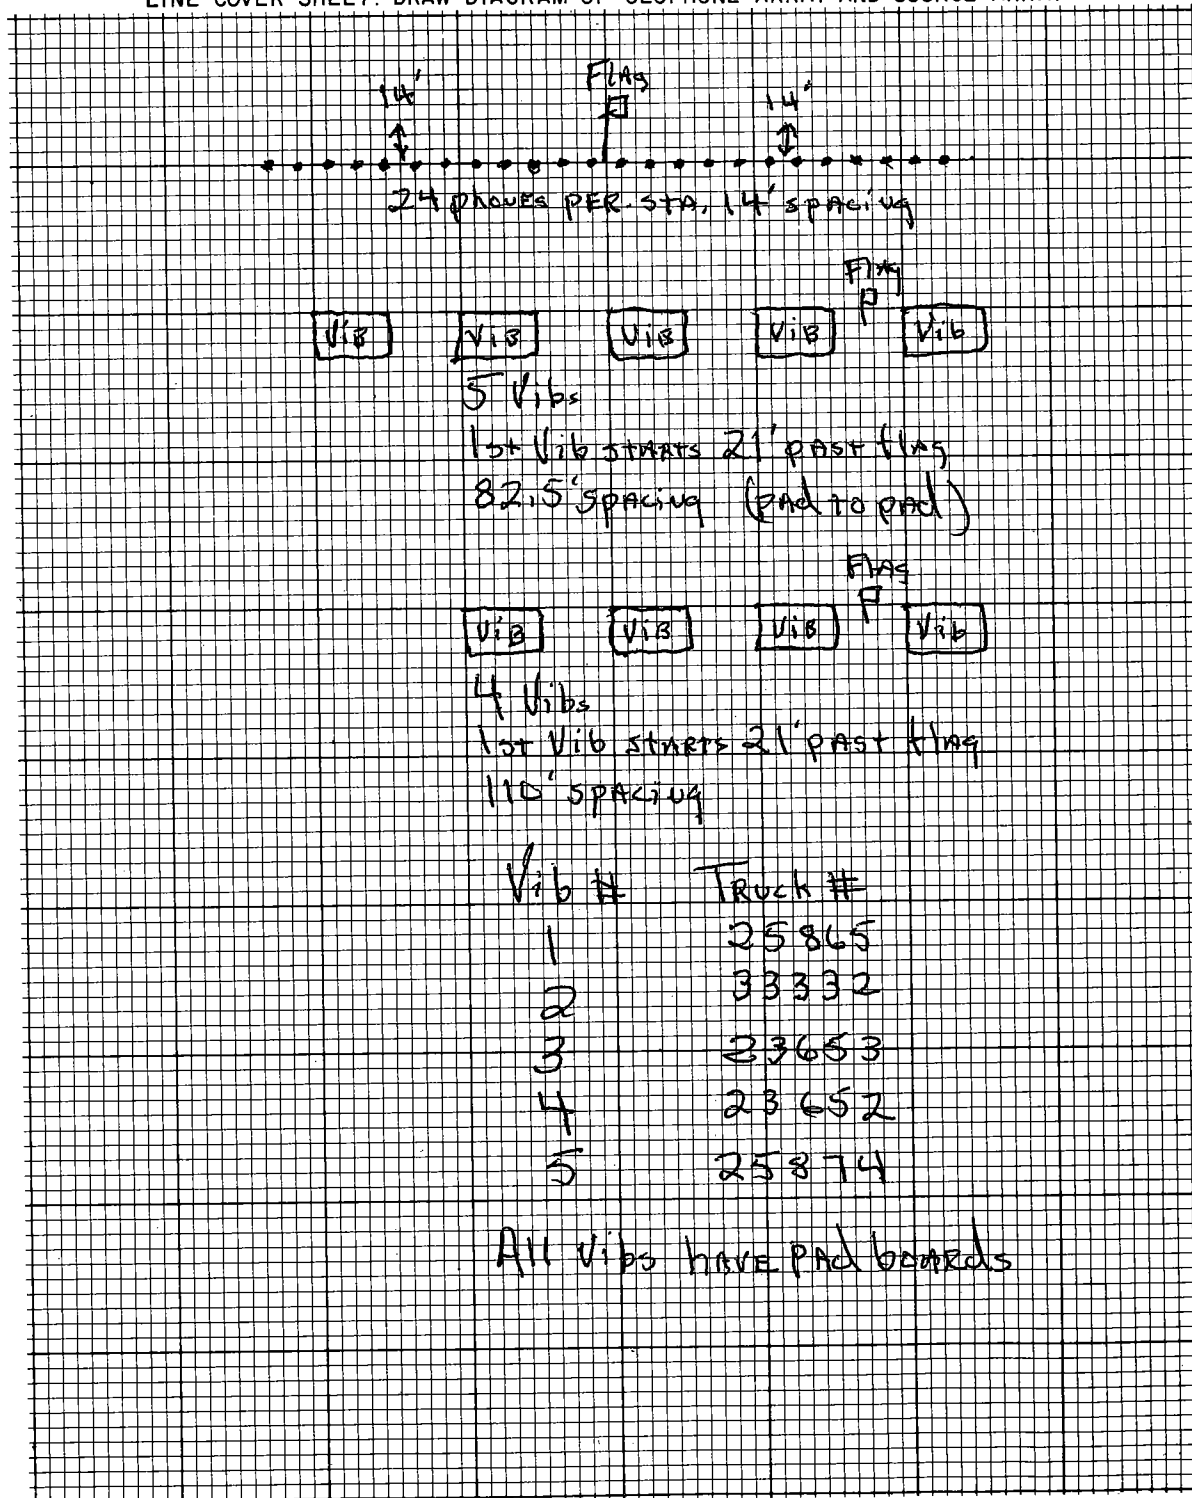 LINE COVER SHEET: DRAW DIAGRAM OF GEOPHONE ARRAY AND SOURCE ARRAY
FlAg
14' 14'
24 phones PER. STA, 14' spAcing
FlAg
ViB ViB ViB ViB Vib
5 Vibs
1st Vib stARts 21' pAst flAg
82.5' spAcing (pAd to pAd)
FlAg
ViB ViB ViB Vib
4 Vibs
1st Vib stARts 21' pAst flAg
110' spAcing
Vib # TRuck #
1 25865
2 33332
3 23653
4 23652
5 25874
All Vibs hAVE pAd boARds